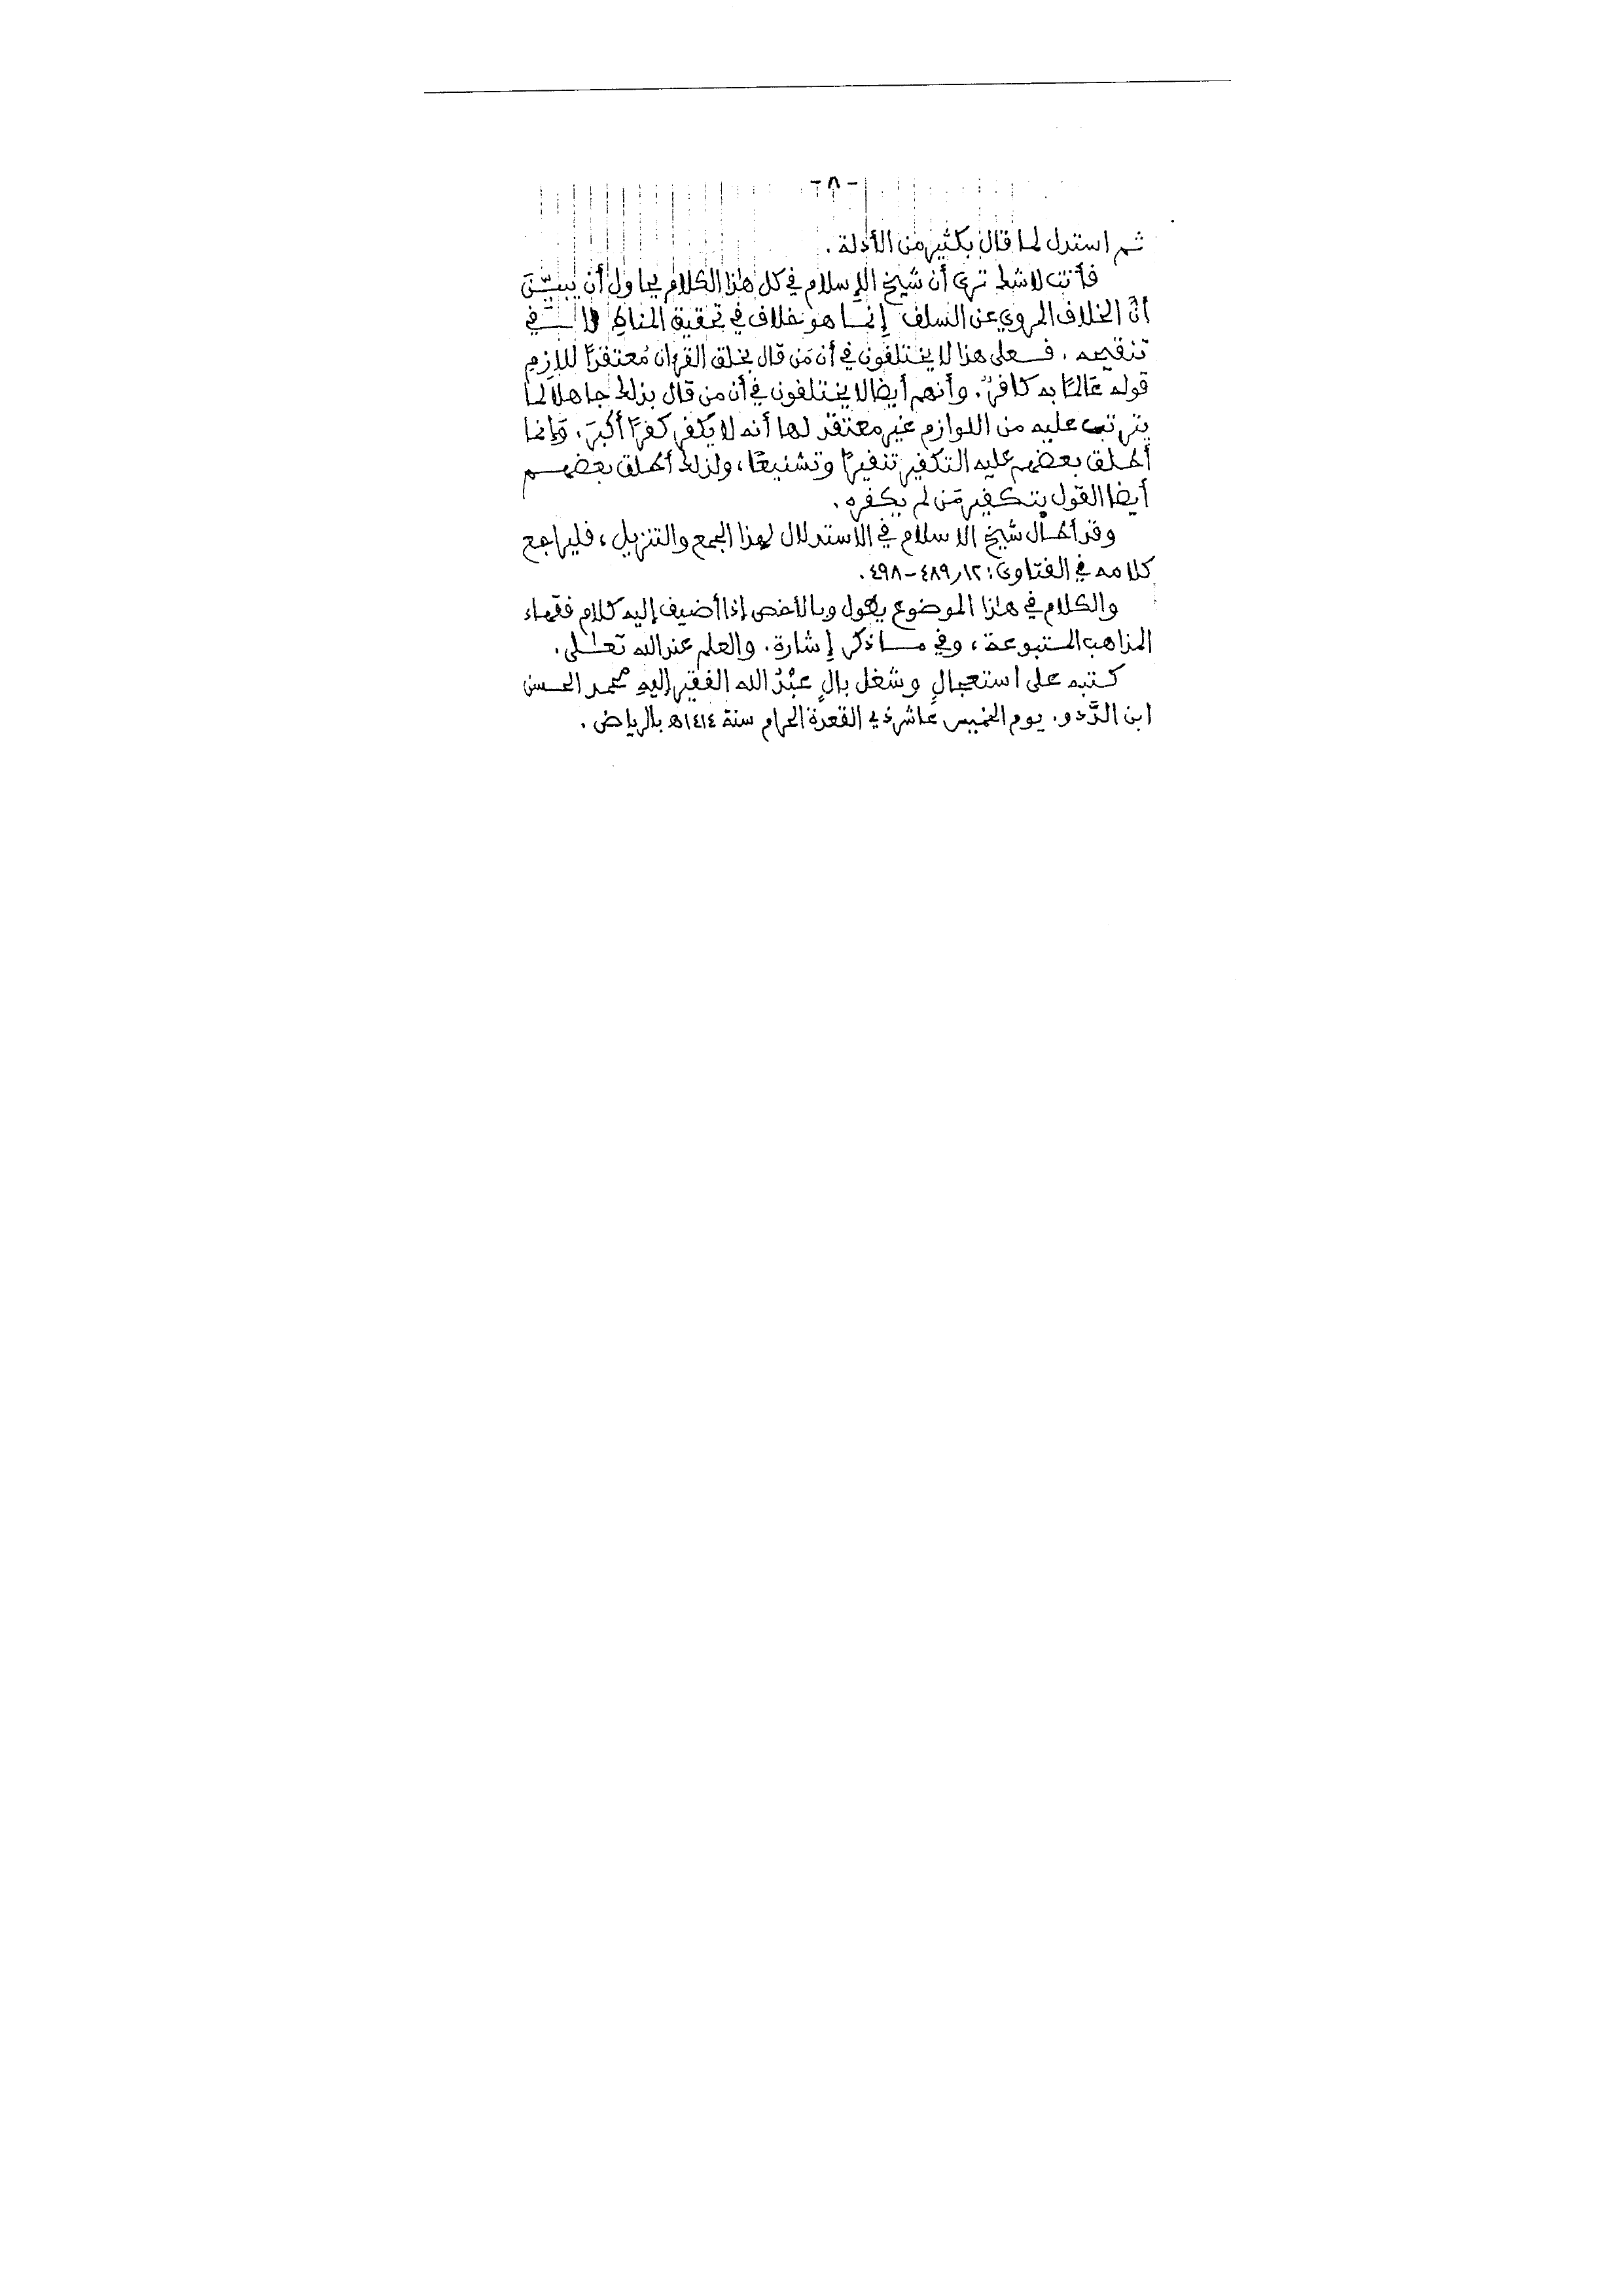 -٨-
ثم استدل لما قال بكثير من الأدلة .
فأنت لاشك ترى أن شيخ الإسلام في كل هذا الكلام يحاول أن يبيّن
أنّ الخلاف المروي عن السلف إنما هو خلاف في تحقيق المناط لا في
تنقيحه . فعلى هذا لا يختلفون في أن مَن قال بخلق القرءان مُعتقدًا للازمِ
قوله عَالمًا به كافرٌ . وأنهم أيضا لا يختلفون في أن من قال بذلك جاهلاً لما
يترتب عليه من اللوازم غير معتقد لها أنه لا يكفر كفرًا أكبرَ . وَإنما
أطلق بعضهم عليه التكفير تنفيرًا وتشنيعًا ، ولذلك أطلق بعضهم
أيضا القول بتكفير مَن لم يكفره .
وقد أطال شيخ الاسلام في الاستدلال لهذا الجمع والتنزيل ، فليراجع
كلامه في الفتاوىَ : ٤٨٩/١٢-٤٩٨ .
والكلام في هذا الموضوع يطول وبالأخص إذا أضيف إليه كلام فقهاء
المذاهب المتبوعة ، وفي ما ذكر إشارة . والعلم عند الله تعالى .
كتبه على استعجالٍ وشغل بالٍ عبْدُ الله الفقير إليه محمد الحسن
ابن الدَّدو . يوم الخميس عاشر ذي القعدة الحرام سنة ١٤١٤ه بالرياض .